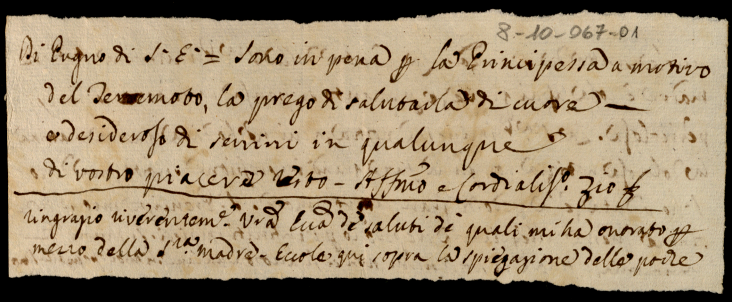 8-10-067-01
Di Pugno di S. E. = Sono in pena p la Principessa a motivo
del Terremoto, la prego di salutarla di cuore —
e desideroso di servirvi in qualunque
di vostro piacere resto - Affmo e Cordialiso. Zio
ringrazio riverenteme. Vra Ecca de saluti de quali mi ha onorato p
mezzo della Sra. Madre - Eccole qui sopra la spiegazione delle poche